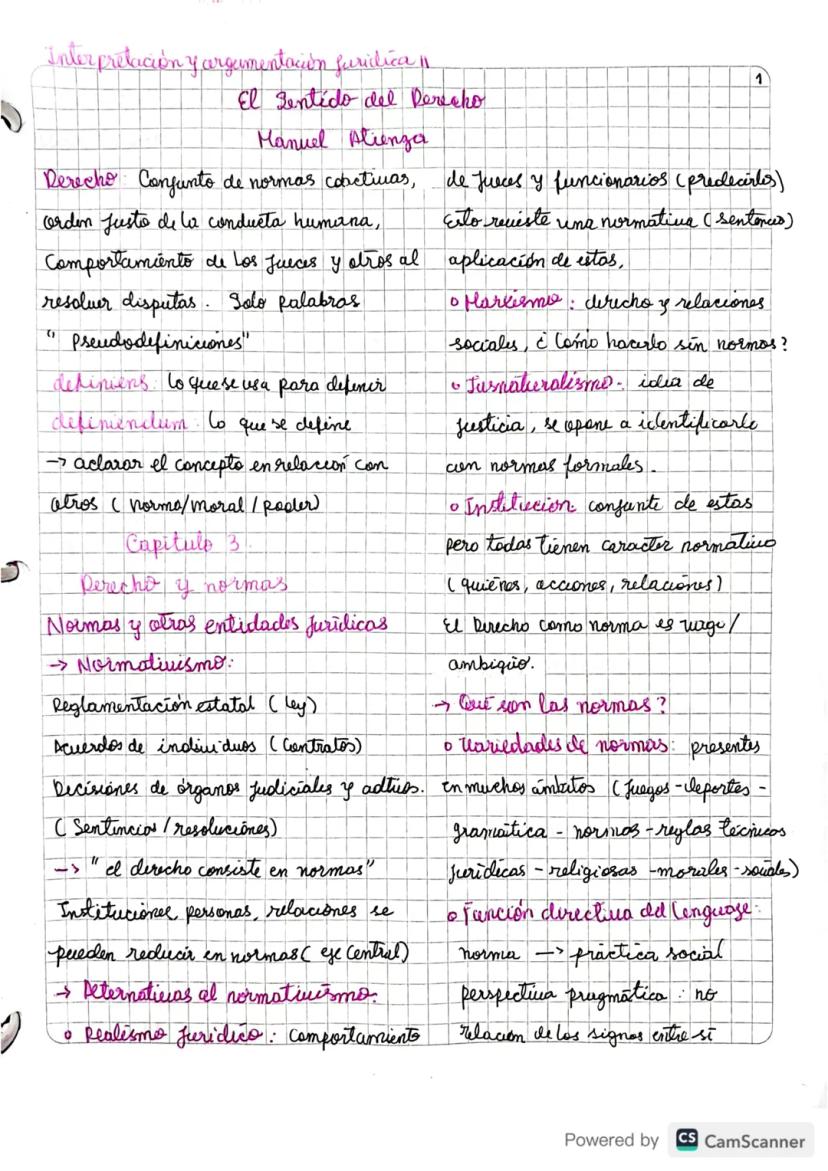 Interpretación y argumentación jurídica II
1
El Sentido del Derecho
Manuel Atienza
Derecho: Conjunto de normas coactivas,
orden justo de la conducta humana,
Comportamiento de los jueces y otros al
resolver disputas. Solo palabras
"Pseudodefiniciones"
definiens: lo que se usa para definir
definiendum: lo que se define
→ aclarar el concepto en relación con
otros (norma/moral/poder)
Capitulo 3.
Derecho y normas
Normas y otras entidades jurídicas
→ Normativismo:
Reglamentación estatal (ley)
Acuerdos de individuos (Contratos)
Decisiones de órganos judiciales y adtivos.
(Sentencias/resoluciones)
→ "el derecho consiste en normas"
Instituciones, personas, relaciones se
pueden reducir en normas (eje Central)
→ Alternativas al normativismo:
o Realismo Jurídico: Comportamiento
de jueces y funcionarios (predecirlos)
Esto reviste una normativa (sentencias)
aplicación de estas,
o Marxismo: derecho y relaciones
sociales, ¿Cómo hacerlo sin normas?
o Iusnaturalismo: idea de
justicia, se opone a identificarlo
con normas formales.
o Institución: conjunto de estas
pero todas tienen caracter normativo
(quiénes, acciones, relaciones)
El Derecho como norma es vago/
ambigüo.
→ Qué son las normas?
o Variedades de normas: presentes
en muchos ámbitos (Juegos - deportes -
gramática - normas - reglas técnicas
jurídicas - religiosas - morales - sociales)
o Función directiva del lenguaje:
norma → práctica social
perspectiva pragmática: no
relación de los signos entre sí
Powered by CS CamScanner